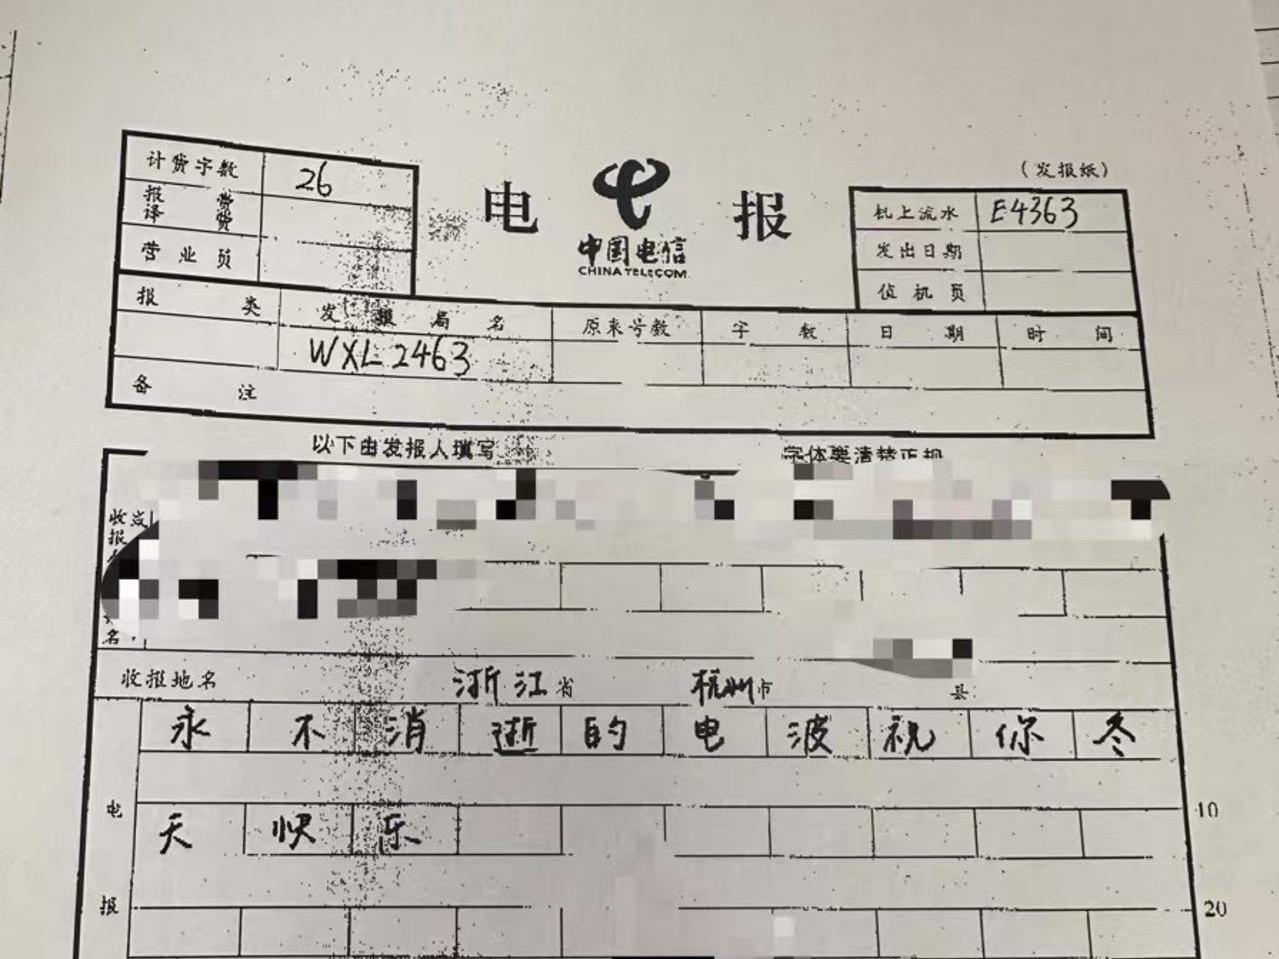 (发报纸)
计费字数 26
报费
译费
营业员
电 报
中国电信
CHINA TELECOM
机上流水 E4363
发出日期
侦机员
报类 发报局名 原来号数 字数 日期 时间
WXL 2463
备注
以下由发报人填写 字体要清楚正规
收
报
名
收报地名 浙江省 杭州市 县
永不消逝的电波祝你冬
10
天快乐
20
电
报